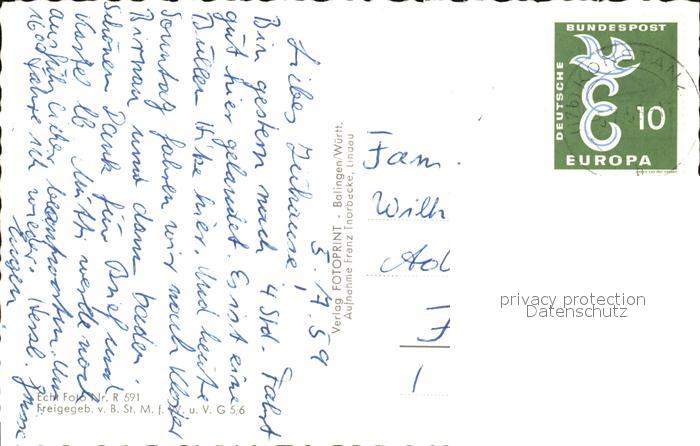 5.7.59
Liebes Zuhause!
Bin gestern nach 4 Std. Fahrt
gut hier gelandet. Es ist eine
Bullen Hitze hier. Und heute
Sonntag fahren wir nach Kloster
Birnau und dann baden.
Schönen Dank für Brief und
Karte lb. Mutti werde noch
ausführlicher beantworten. Um
16 00 fahre ich wieder. Herzl. Grüsse
Eugen
Echt Foto Nr. R 591
Freigegeb. v. B. St. M. f. u. V. G 5/6
Verlag FOTOPRINT - Balingen/Württ.
Aufnahme Franz Thorbecke, Lindau
DEUTSCHE BUNDESPOST
10
EUROPA
Fam.
Wilh
privacy protection
Datenschutz